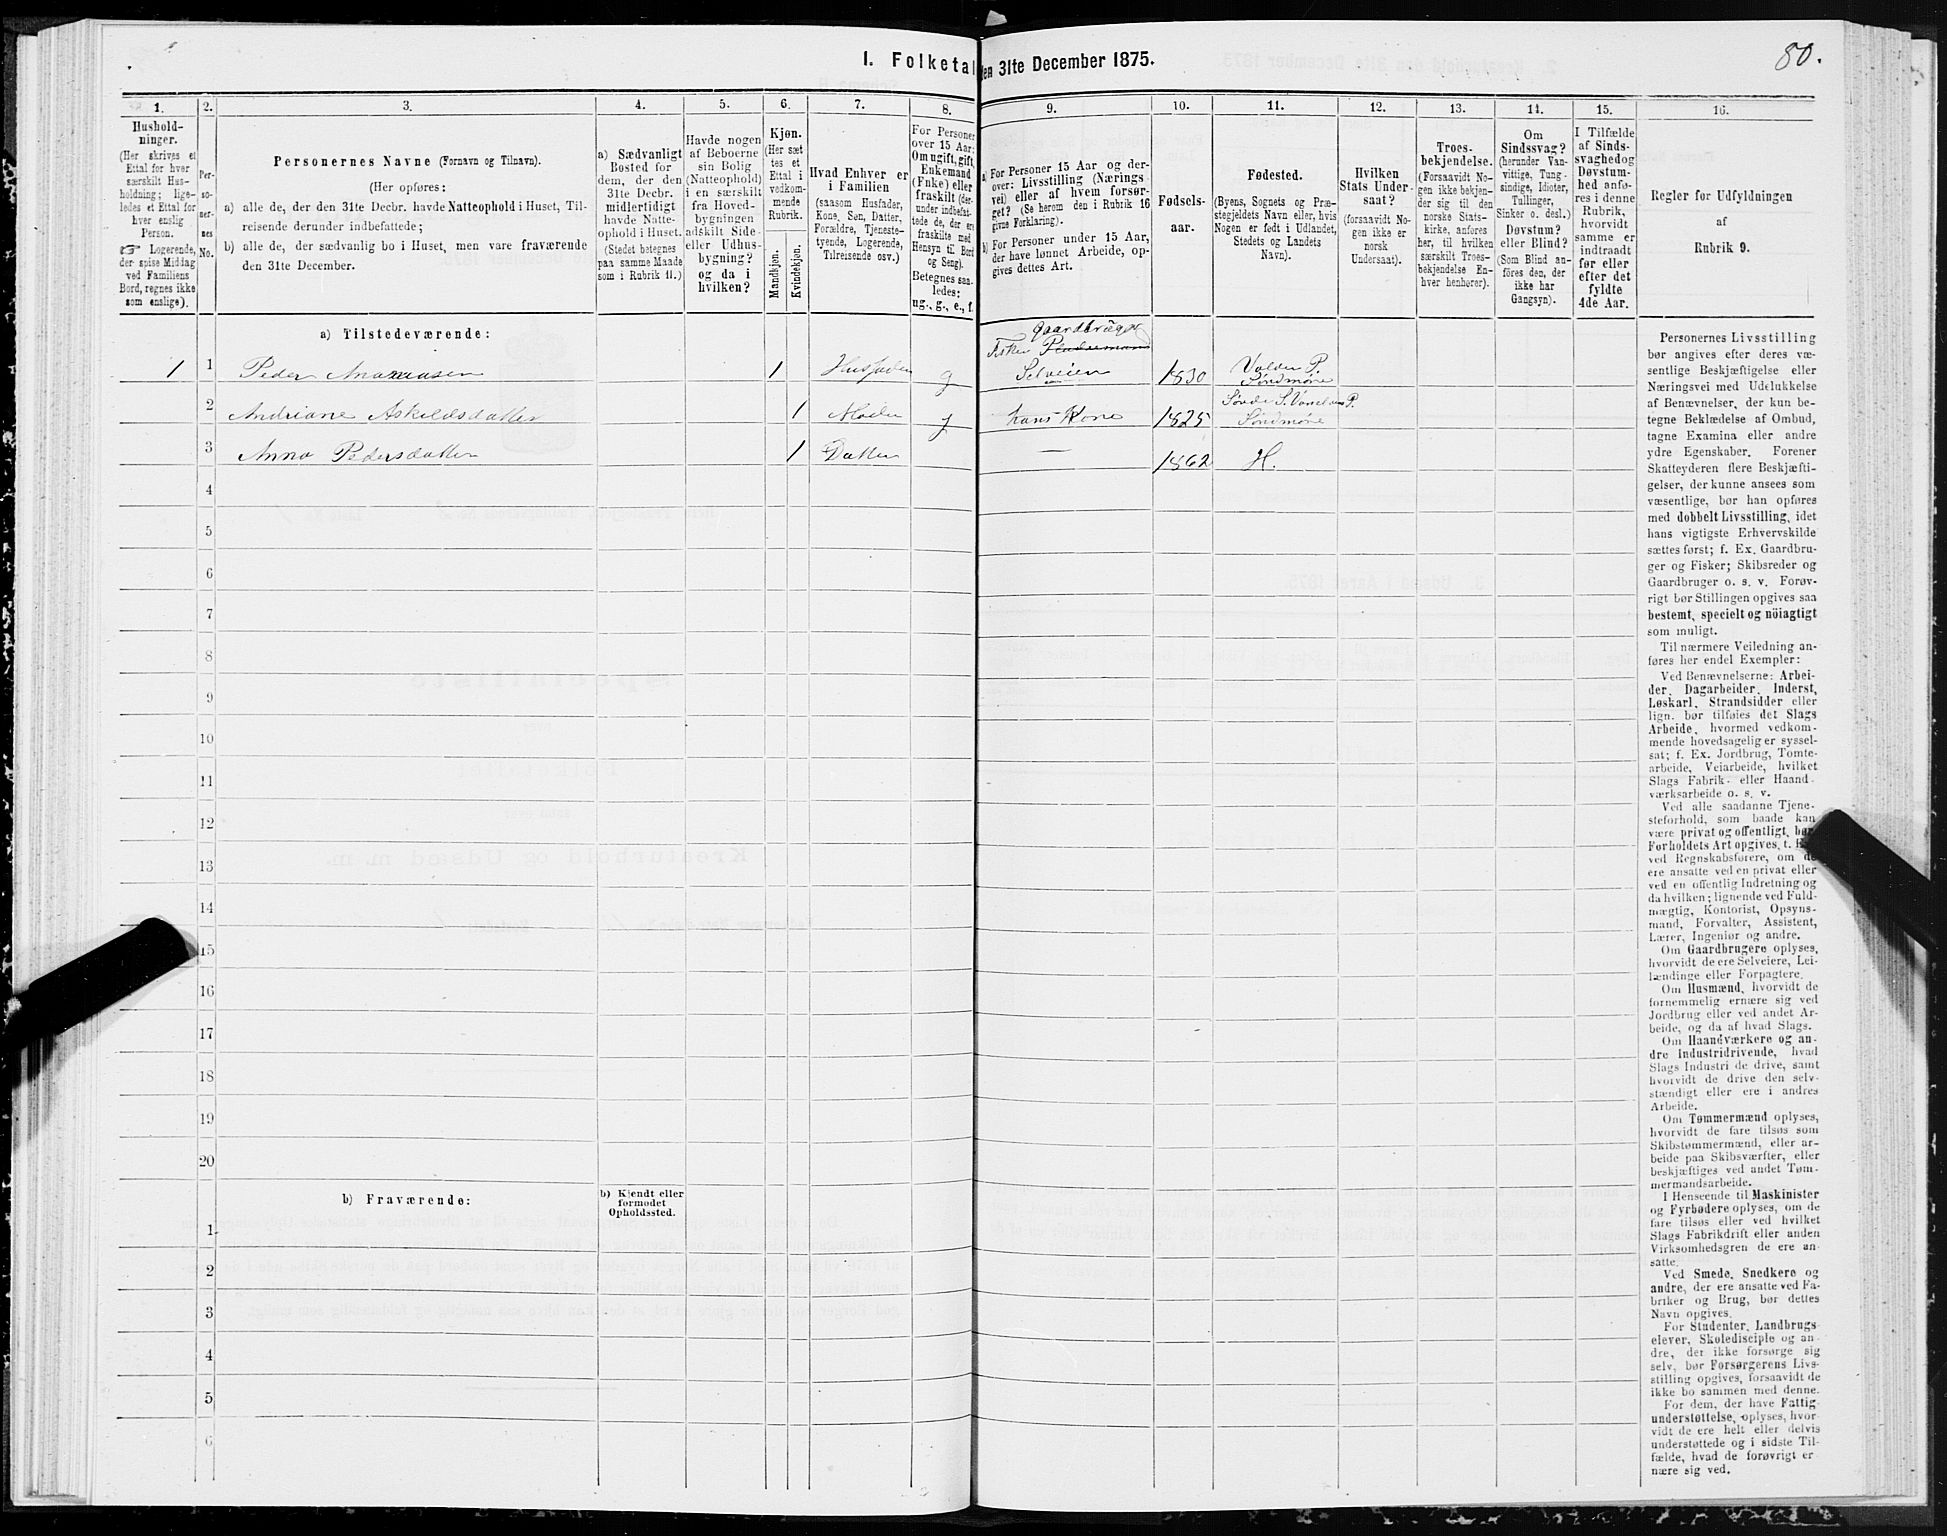 80.
I. Folketal den 31te December 1875.
1.
Hushold-
ninger.
(Her skrives et
Ettal for hver
særskilt Hus-
holdning; lige-
ledes et Ettal for
hver enslig
Person.
☞ Logerende,
der spise Middag
ved Familiens
Bord, regnes ikke
som enslige).
2.
Per-
so-
ner-
nes
No.
3.
Personernes Navne (Fornavn og Tilnavn).
(Her opføres:
a) alle de, der den 31te Decbr. havde Natteophold i Huset, Til-
reisende derunder indbefattede;
b) alle de, der sædvanlig bo i Huset, men vare fraværende
den 31te December.
4.
a) Sædvanligt
Bosted for
dem, der den
31te Decbr.
midlertidigt
havde Natte-
ophold i Huset.
(Stedet betegnes
paa samme Maade
som i Rubrik 11.)
5.
Havde nogen
af Beboerne
sin Bolig
(Natteophold)
i en særskilt
fra Hoved-
bygningen
adskilt Side-
eller Udhus-
bygning?
og da i
hvilken?
6.
Kjøn.
(Her sæt
tes et
Ettal i
vedkom-
mende
Rubrik.
Mandkjøn.
Kvindekjøn.
7.
Hvad Enhver er
i Familien
(saasom Husfader,
Kone, Søn, Datter,
Forældre, Tjeneste-
tyende, Logerende,
Tilreisende osv.)
8.
For Personer
over 15 Aar:
Om ugift, gift,
Enkemand
(Enke) eller
fraskilt (der-
under indbefat-
tede de, der ere
fraskilte med
Hensyn til Bord
og Seng).
Betegnes saa-
ledes:
ug., g., e., f.
9.
a) For Personer 15 Aar og der-
over: Livsstilling (Nærings-
vei) eller af hvem forsør-
get? (Se herom den i Rubrik 16
givne Forklaring).
b) For Personer under 15 Aar,
der have lønnet Arbeide, op-
gives dettes Art.
10.
Fødsels-
aar.
11.
Fødested.
(Byens, Sognets og Præ-
stegjeldets Navn eller, hvis
Nogen er født i Udlandet,
Stedets og Landets
Navn).
12.
Hvilken
Stats Under-
saat?
(forsaavidt No-
gen ikke er
norsk
Undersaat).
13.
Troes-
bekjendelse.
(Forsaavidt No-
gen ikke bekjen-
der sig til den
norske Stats-
kirke, anføres
her, til hvilken
særskilt Troes-
bekjendelse En-
hver henhører).
14.
Om
Sindssvag?
(herunder Van-
vittige, Tung-
sindige, Idioter,
Tullinger,
Sinker o. desl.)
Døvstum?
eller Blind?
(Som Blind an-
føres den, der
ikke har
Gangsyn).
15.
I Tilfælde
af Sinds-
svaghedog
Døvstum-
hed anfø-
res i denne
Rubrik,
hvorvidt
samme er
indtraadt
før eller
efter det
fyldte
4de Aar.
16.
Regler for Udfyldningen
af
Rubrik 9.
a) Tilstedeværende:
Gaardbruger
Fisker
1 1 Peder 1 Husfader g Selveier 1830 Volden P.
Søndmøre
2 Andriane Askildsdatter 1 Moder g hans Kone 1825
Søndmøre
3 Anna Pedersdatter 1 Datter — 1862 H.
4
5
6
7
8
9
10
11
12
13
14
15
16
17
18
19
20
b) Fraværende:
b) Kjendt eller
formodet
Opholdssted.
1
2
3
4
5
6
Personernes Livsstilling
bør angives efter deres væ-
sentlige Beskjæftigelse eller
Næringsvei med Udelukkelse
af Benævnelser, der kun be-
tegne Beklædelse af Ombud,
tagne Examina eller andre
ydre Egenskaber. Forener
Skatteyderen flere Beskjæfti-
gelser, der kunne ansees som
væsentlige, bør han opføres
med dobbelt Livsstilling, idet
hans vigtigste Erhvervskilde
sættes først; f. Ex. Gaardbru-
ger og Fisker; Skibsreder og
Gaardbruger o. s. v. Forøv-
rigt bør Stillingen opgives saa
bestemt, specielt og nöiagtigt
som muligt.
Til nærmere Veiledning an-
føres her endel Exempler:
Ved Benævnelserne: Arbei-
der, Dagarbeider, Inderst,
Løskarl, Strandsidder eller
lign. bør tilføies det Slags
Arbeide, hvormed vedkom-
mende hovedsagelig er syssel-
sat; f. Ex. Jordbrug, Tomte-
arbeide, Veiarbeide, hvilket
Slags Fabrik- eller Haand-
værksarbeide o. s. v.
Ved alle saadanne Tjene-
steforhold, som baade kan
være privat og offentligt, bør
Forholdets Art opgives, t. Ex.
ved Regnskabsførere, om de
ere ansatte ved en privat eller
ved en offentlig Indretning og
da hvilken; lignende ved Fuld-
mægtig, Kontorist, Opsyns-
mand, Forvalter, Assistent,
Lærer, Ingeniør og andre.
Om Gaardbrugere oplyses,
hvorvidt de ere Selveiere, Lei-
lændinge eller Forpagtere.
Om Husmænd, hvorvidt de
fornemmelig ernære sig ved
Jordbrug eller ved andet Ar-
beide, og da af hvad Slags.
Om Haandværkere og an-
dre Industridrivende, hvad
Slags Industri de drive, samt
hvorvidt de drive den selv-
stændigt eller ere i andres
Arbeide.
Om Tømmermænd oplyses,
hvorvidt de fare tilsøs som
Skibstømmermænd, eller ar-
beide paa Skibsværfter, eller
beskjæftiges ved andet Tøm-
mermandsarbeide.
I Henseende til Maskinister
og Fyrbødere oplyses, om de
fare tilsøs eller ved hvilket
Slags Fabrikdrift eller anden
Virksomhedsgren de ere an-
satte.
Ved Smede, Snedkere og
andre, der ere ansatte ved Fa-
briker og Brug, bør dettes
Navn opgives.
For Studenter, Landbrugs-
elever, Skoledisciple og an-
dre, der ikke forsørge sig
selv, bør Forsørgerens Livs-
stilling opgives, forsaavidt de
ikke bo sammen med denne.
For dem, der have Fattig-
understøttelse, oplyses, hvor-
vidt de ere helt eller delvis
understøttede og i sidste Til-
fælde, hvad de forøvrigt er-
nære sig ved.